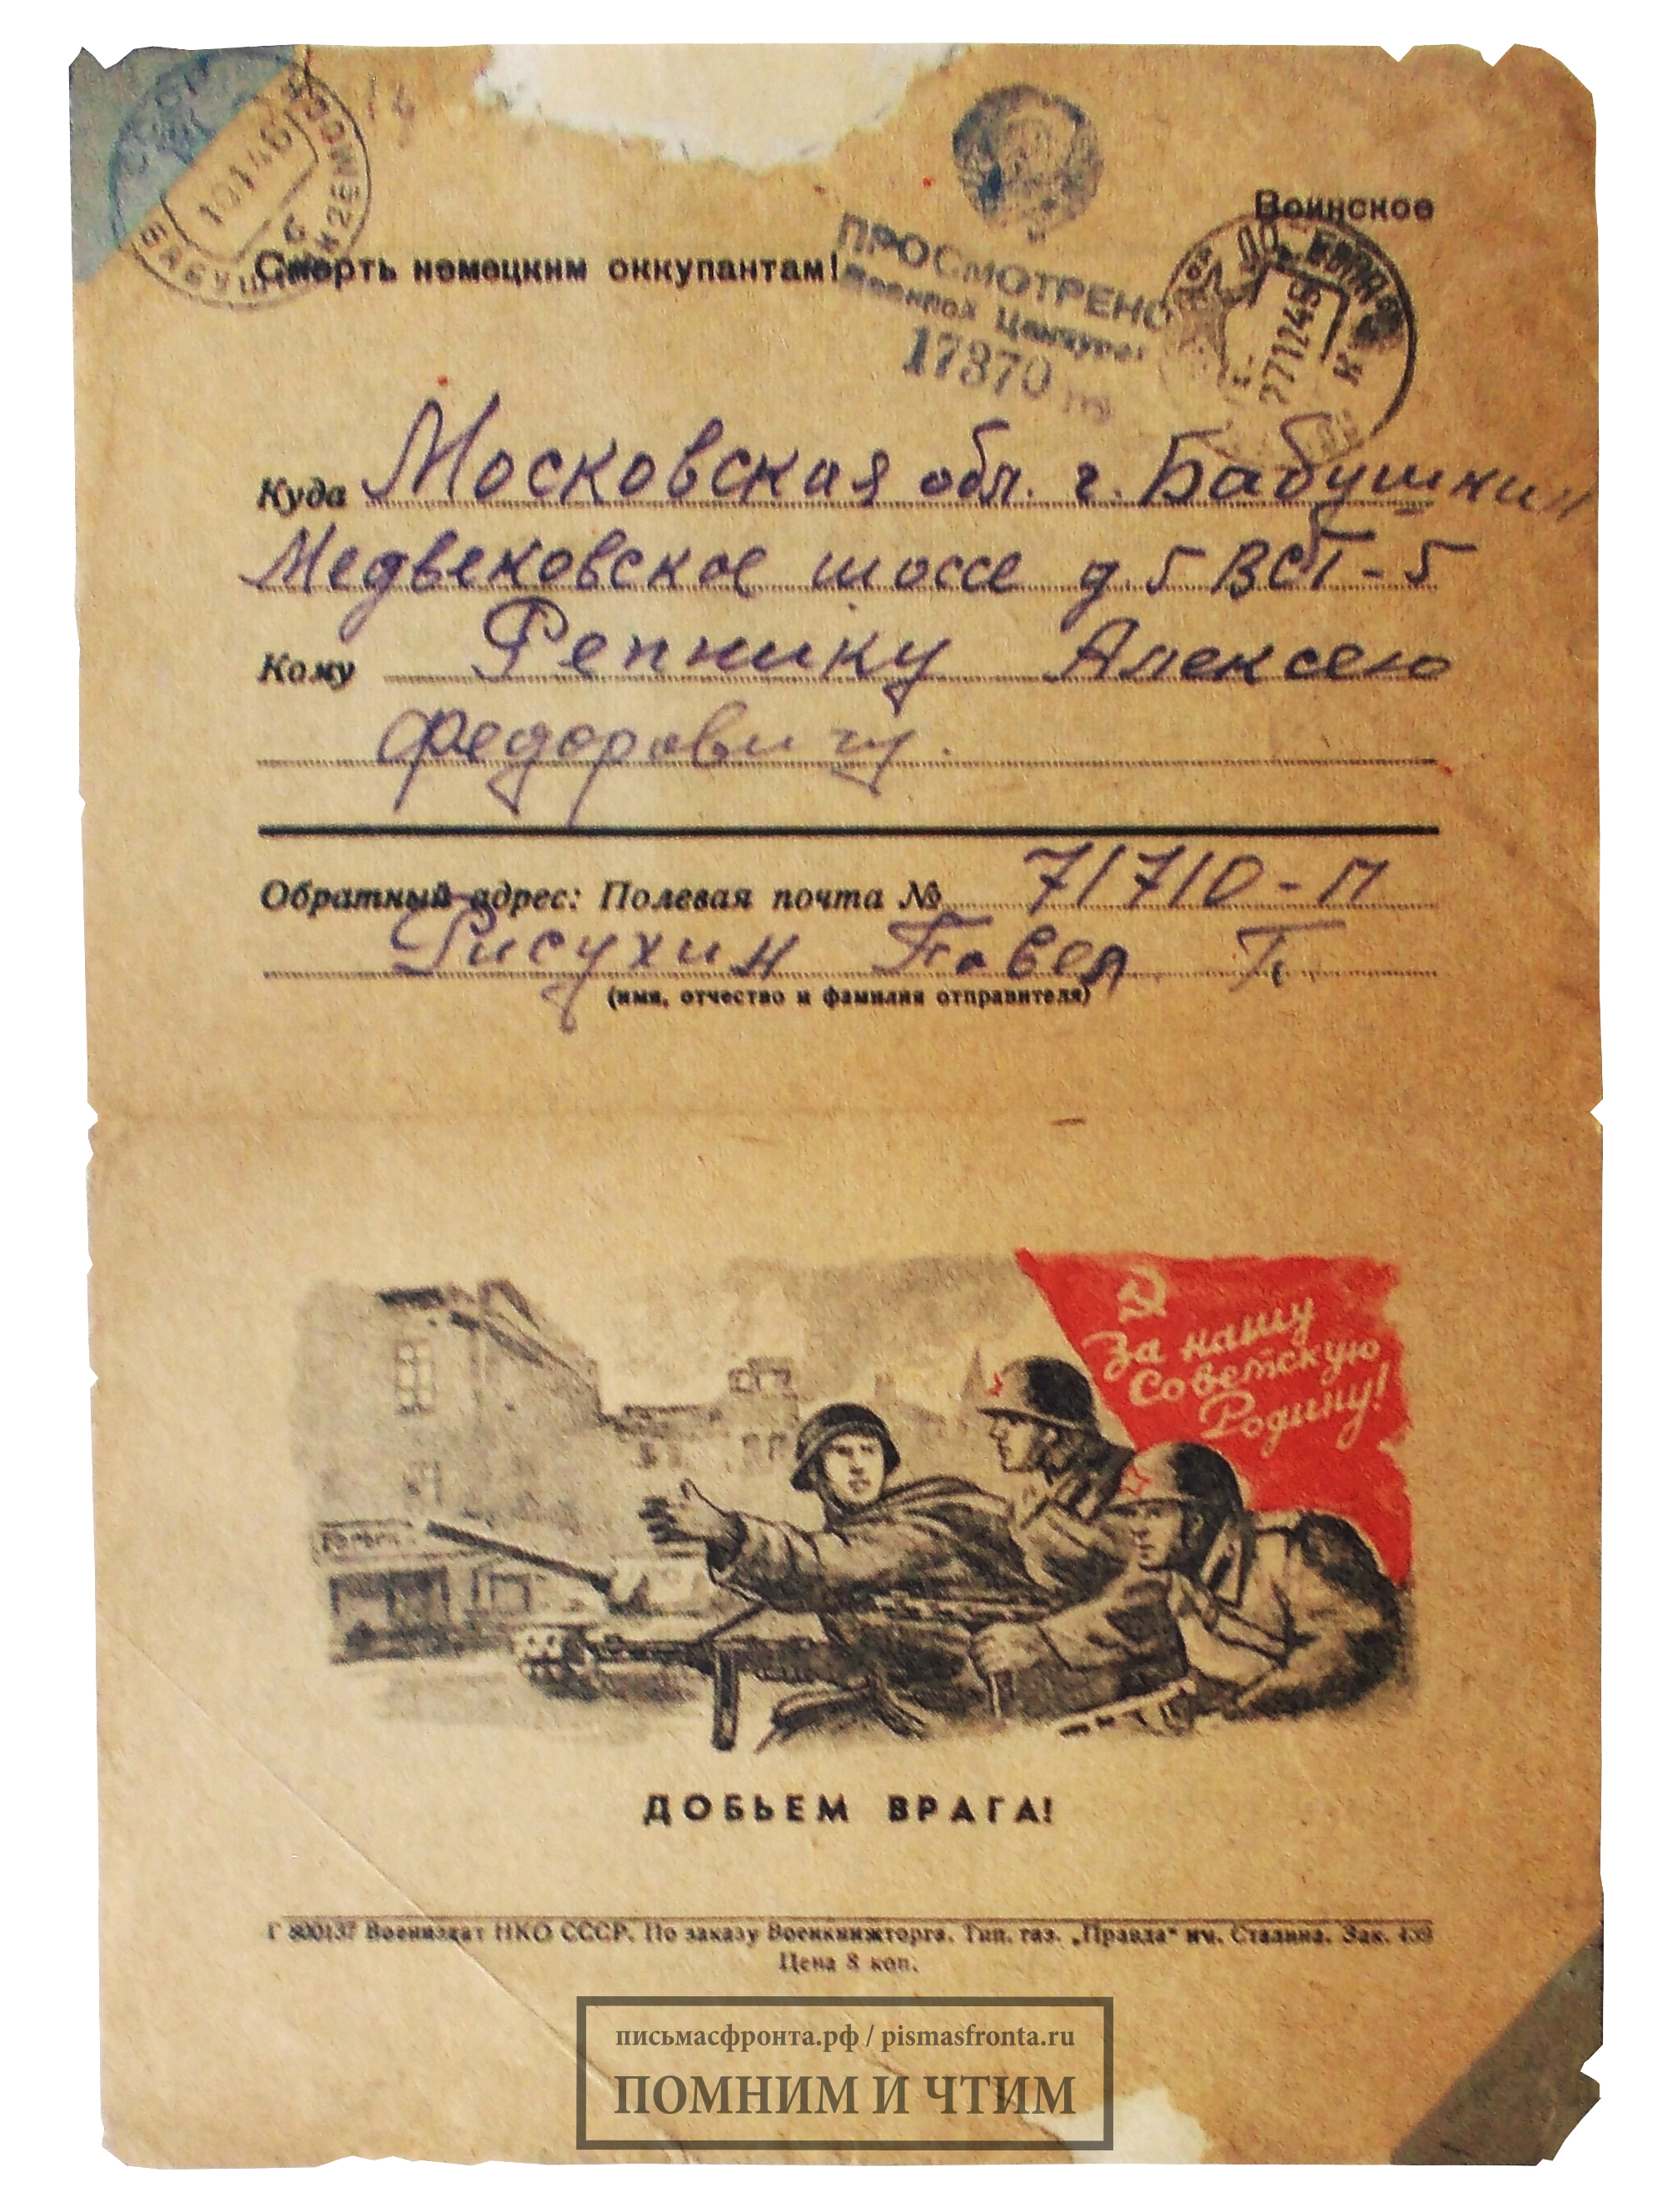 Воинское
Смерть немецким оккупантам!
ПРОСМОТРЕНО
Военной Цензурой
17370
Куда Московская обл. г. Бабушкин
Медвековское шоссе д. 5 ВСТ-5
Кому Репнику Алексею
Федоровичу.
Обратный адрес: Полевая почта № 71710-П
Рисухин Павел П.
(имя, отчество и фамилия отправителя)
За нашу
Советскую
Родину!
ДОБЬЕМ ВРАГА!
Г 800137 Воениздат НКО СССР. По заказу Военкнижторга. Тип. газ. „Правда“ им. Сталина. Зак. 459
Цена 8 коп.
письмасфронта.рф / pismasfronta.ru
ПОМНИМ И ЧТИМ